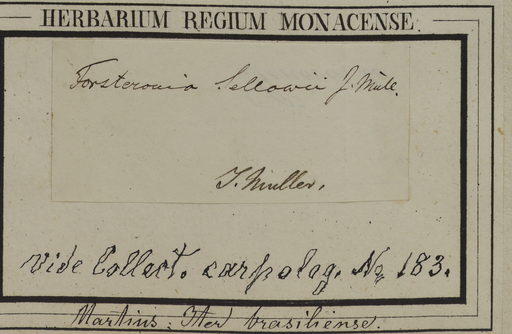 HERBARIUM REGIUM MONACENSE.
Forsteronia Sellowii J. Müll.
J. Muller.
Vide Collect. carpolog. No 183.
Martius: Iter brasiliense.